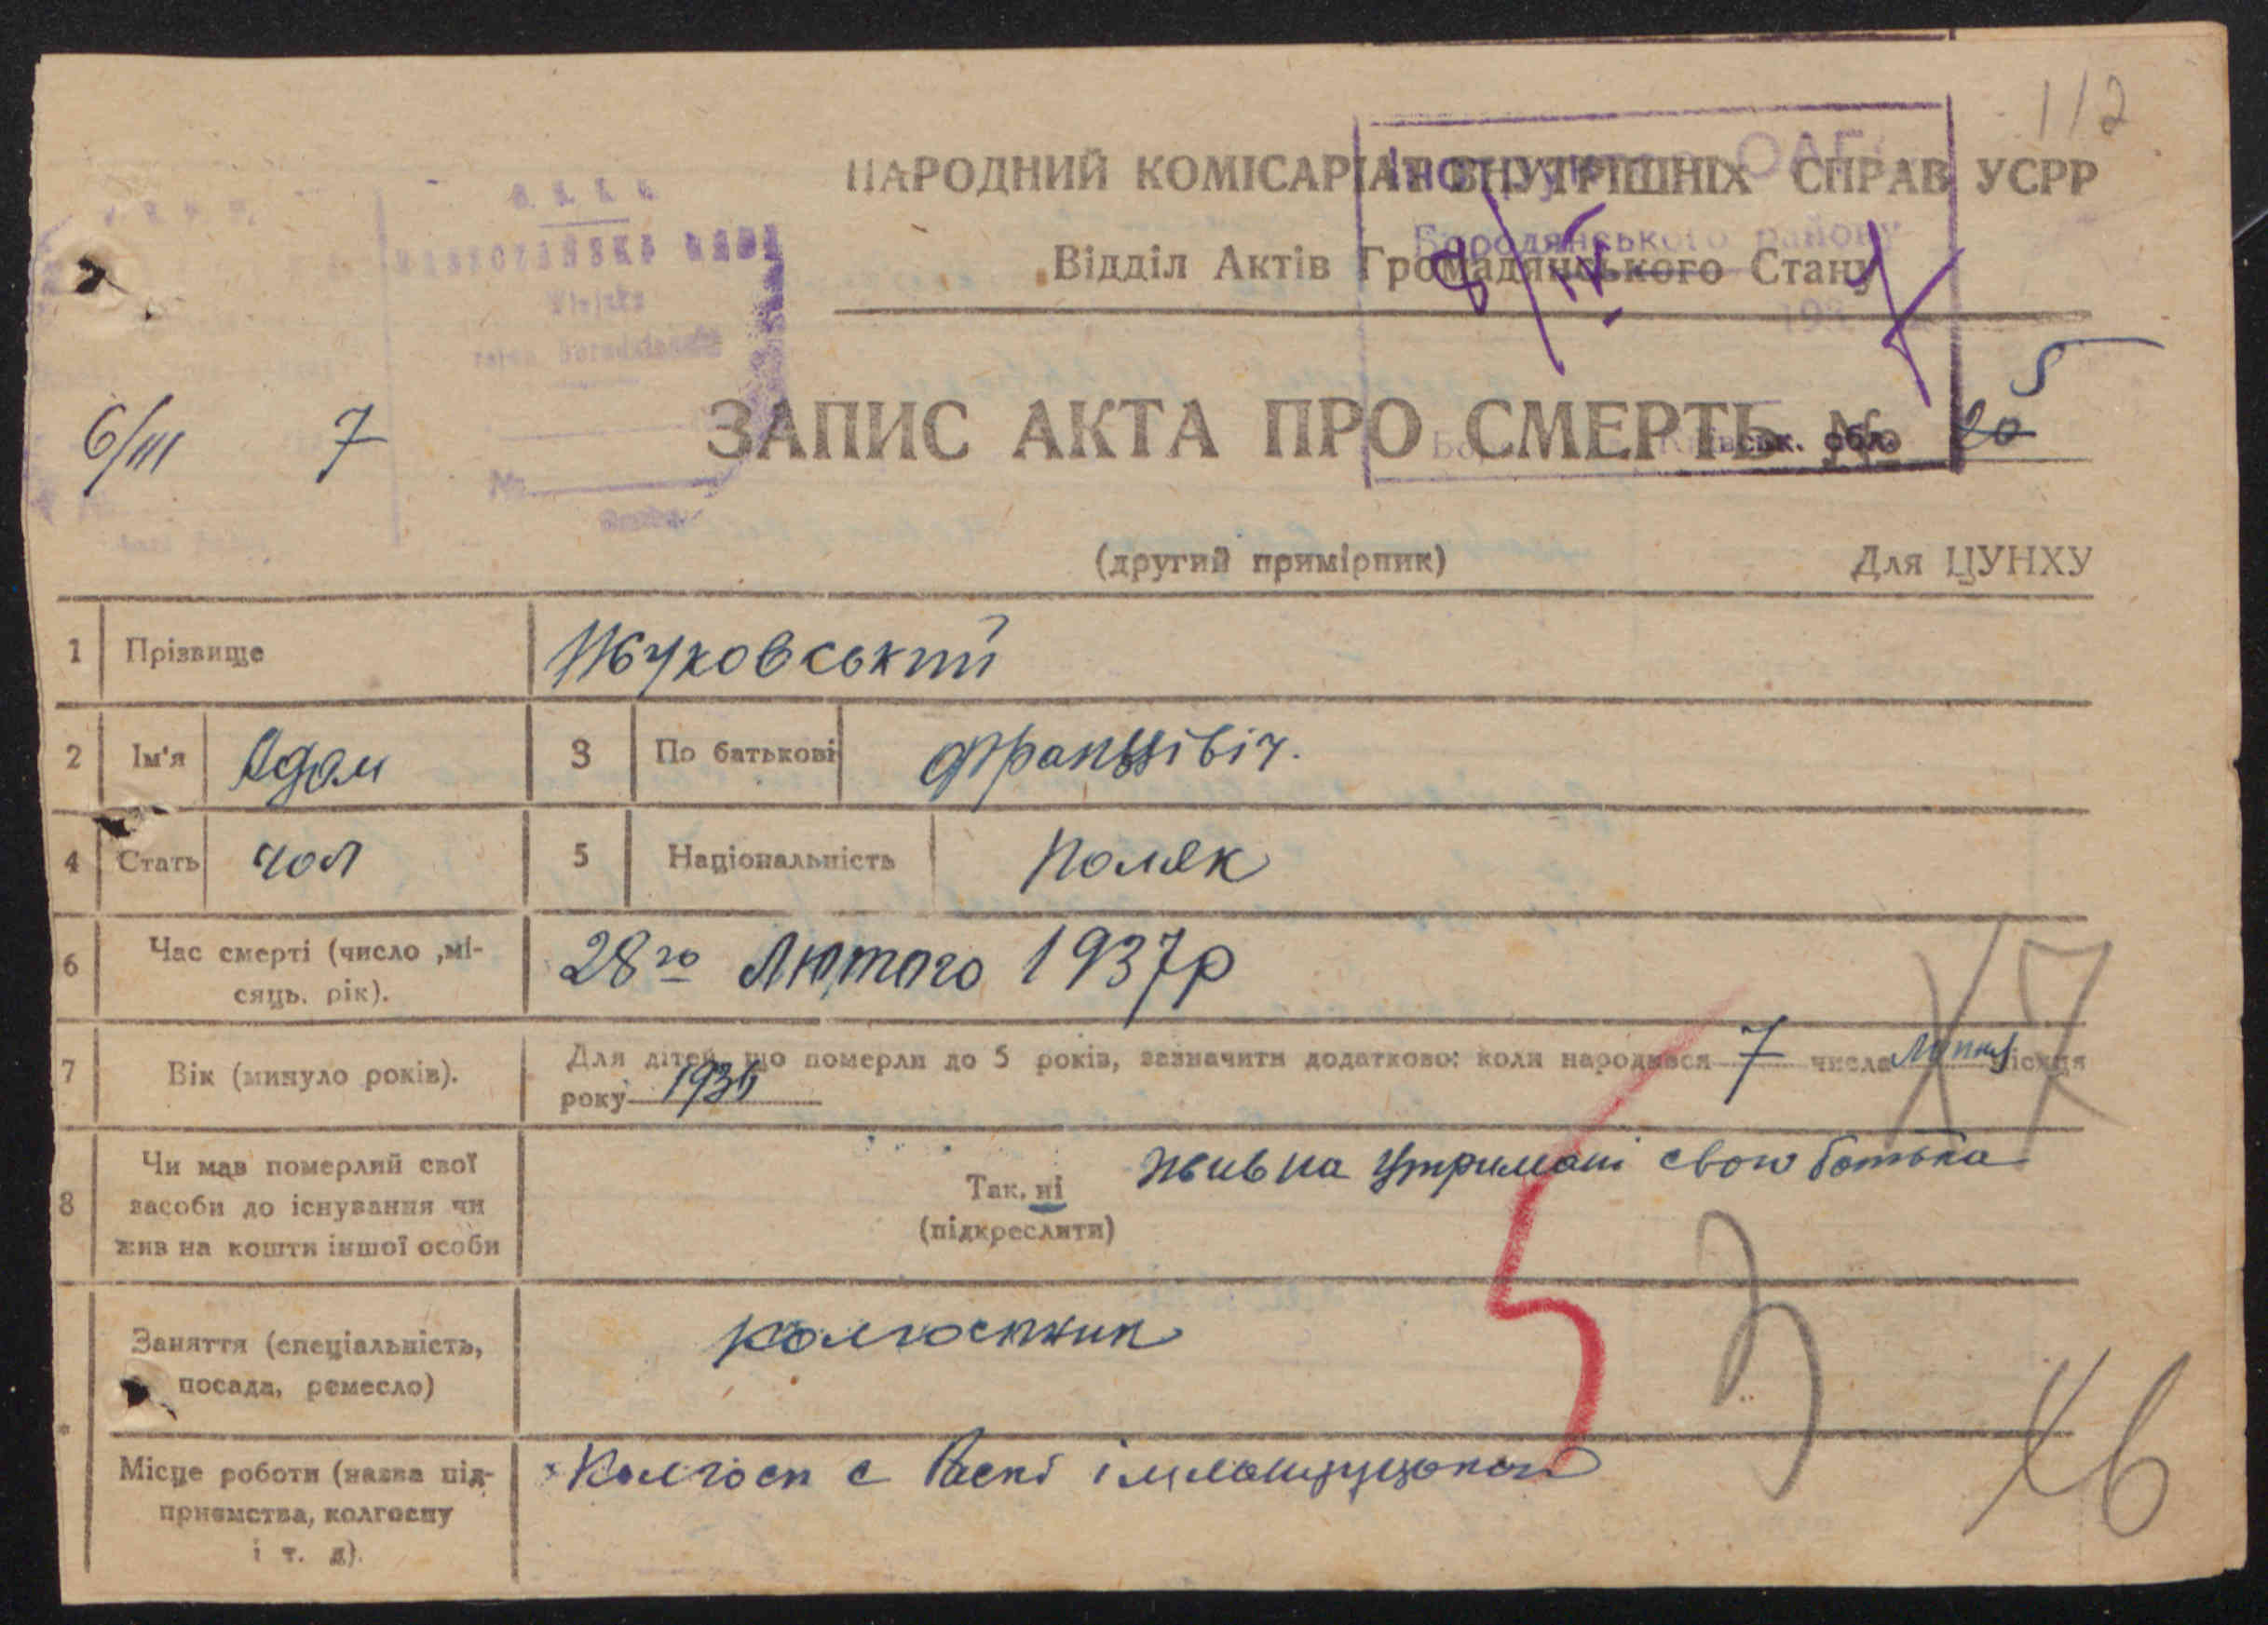 112
НАРОДНИЙ КОМІСАРІАТ ВНУТРІШНІХ СПРАВ УСРР
Бородянського району
Відділ Актів Громадянського Стану
193
6/III 7
5
ЗАПИС АКТА ПРО СМЕРТЬ № 20
Київськ. обл.
№
(другий примірник) Для ЦУНХУ
1 Прізвище Жуковський
2 Ім'я Адам 3 По батькові Францівіч.
4 Стать чол 5 Національність Поляк
6 Час смерті (число ,мі-
сяць. рік). 28го Лютого 1937р
7 Вік (минуло років). Для дітей, що померли до 5 років, зазначити додатково: коли народився 7 числа місяця
року 1936
8 Чи мав померлий свої
засоби до існування чи
жив на кошти іншої особи
Так. ні
(підкреслити)
жив на утримані свою батька
Заняття (спеціальність,
посада, ремесло) колгоспник
Місце роботи (назва під-
приємства, колгоспу
і т. д).
Колгосп с Раскі
5
3